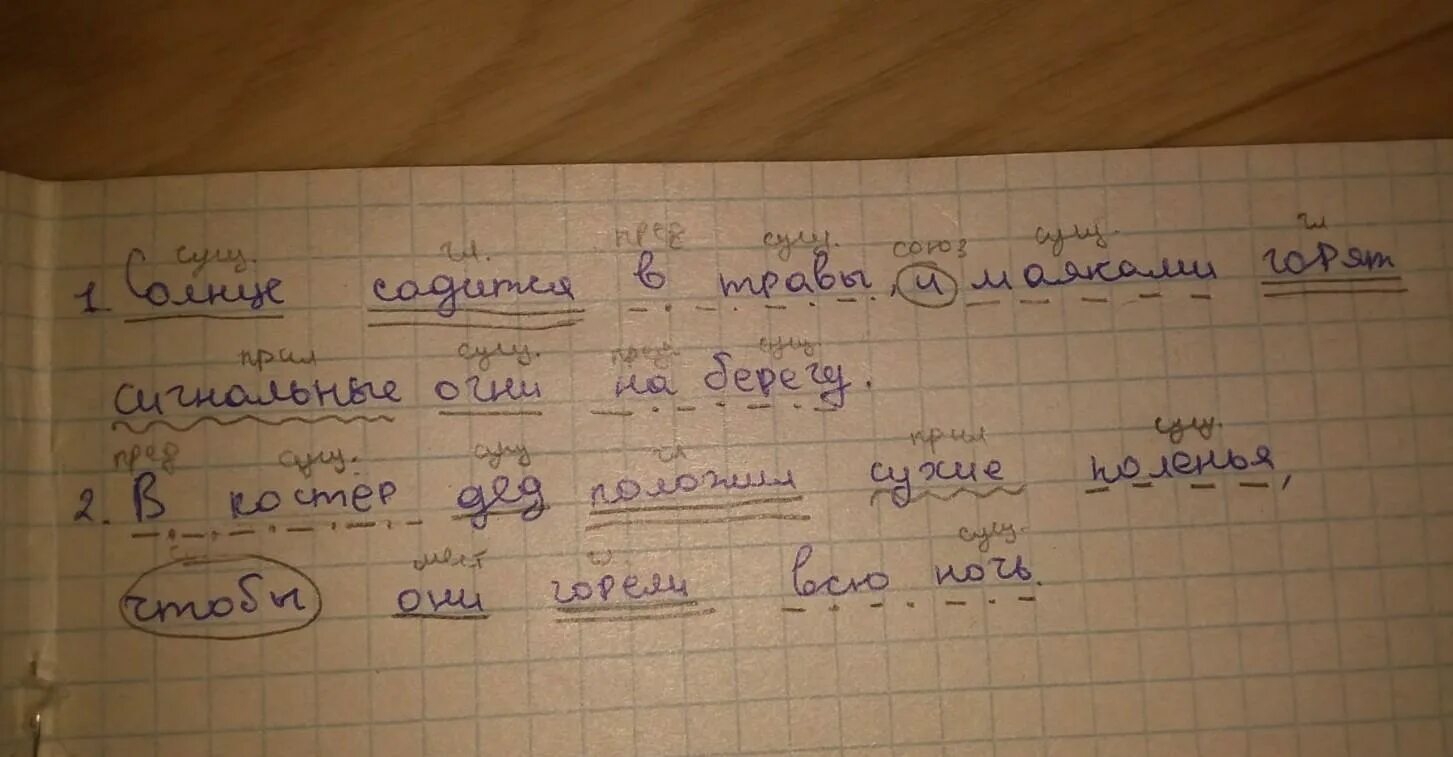 сущ. гл. пред сущ. союз сущ. гл
1. Солнце садится в травы, и маяками горят
прил сущ. пред сущ.
сигнальные огни на берегу.
пред сущ. сущ гл прил сущ.
2. В костёр дед положил сухие поленья,
мест гл сущ.
чтобы они горели всю ночь.